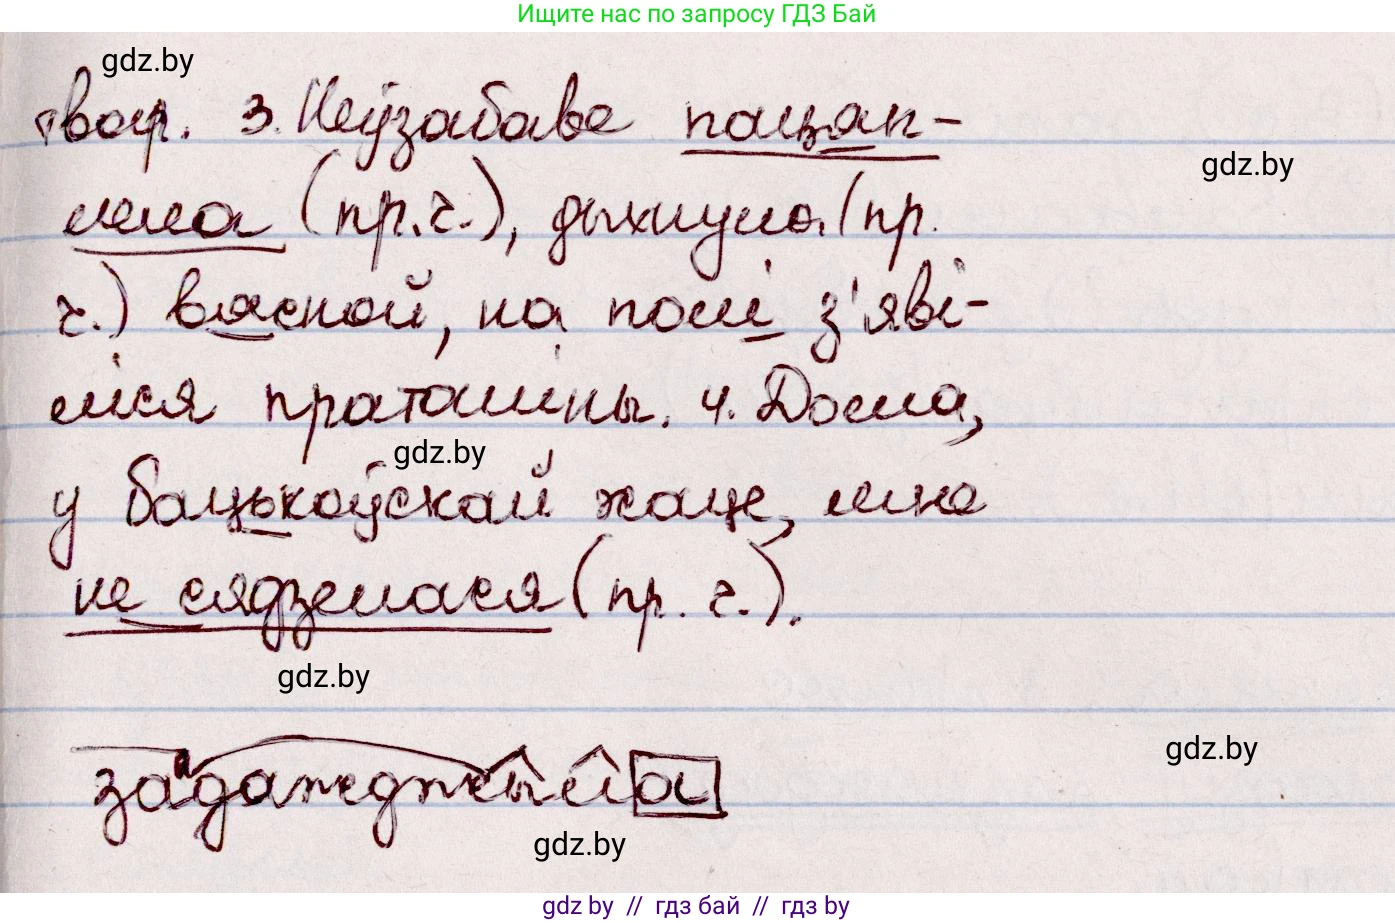 Ищите нас по запросу ГДЗ Бай
gdz.by
твар. 3. Неўзабаве пацяп-
gdz.by
лела (пр.ч.), дыхнула (пр.
ч.) вясной, на полі з'яві-
ліся праталіны. 4. Дома,
gdz.by
у бацькоўскай хаце, мне
не сядзелася (пр. ч.).
gdz.by
gdz.by
задажджыла
gdz.by
gdz by // гдз бай // гдз by